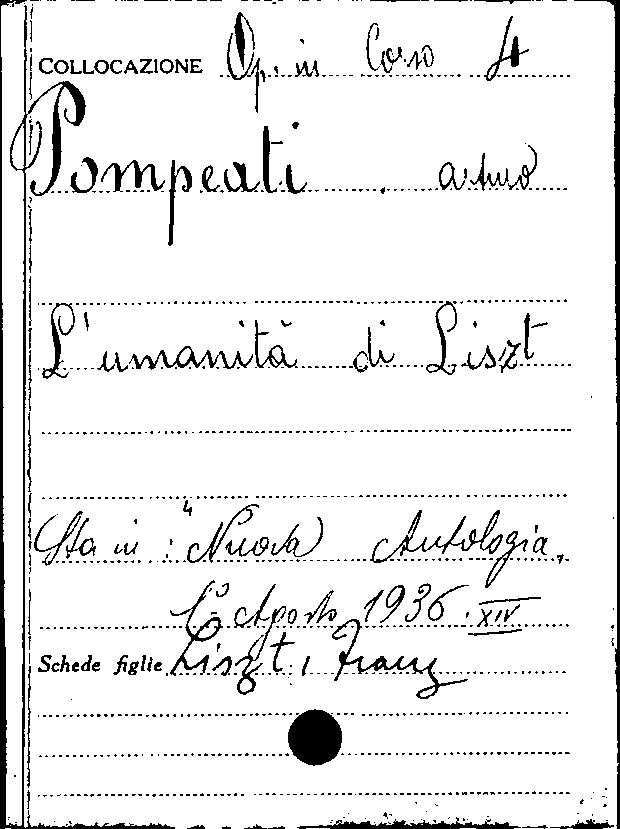 COLLOCAZIONE Op. in Corso 4
Pompeati . Arturo
L'umanità di Liszt
Sta in : "Nuova Antologia,
1º Agosto 1936. XIV
Schede figlie Liszt, Franz